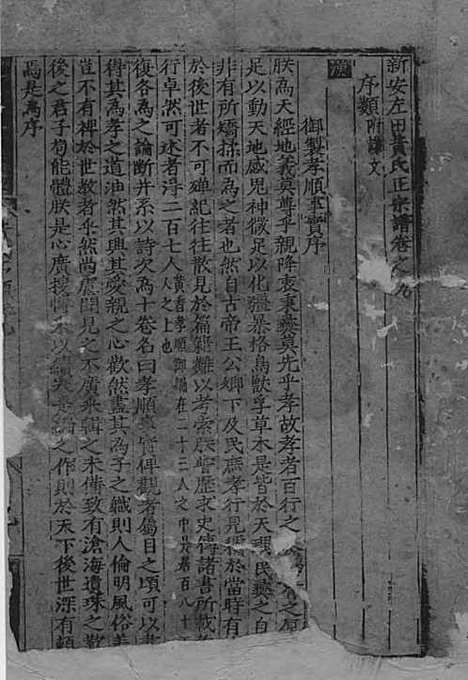 新安左田黃氏正宗譜卷之九
序類附譔文
御製孝順事實序
朕為天經地義莫尊乎親降衷秉彝莫先乎孝故孝者百行之
足以動天地感鬼神微足以化彊暴格鳥獸孚草木是皆於天理民彝之自
非有所矯揉而為之者也然自古帝王公卿下及民庶孝行見稱於當時有
於後世者不可殫紀往往散見於篇籍難以考索朕嘗歷求史傳諸書所載
行卓然可述者得二百七人黃香孝順御編在二十三人之中吳幕百八十人之上也
復各為之論斷并系以詩次為十卷名曰孝順事實俾觀者屬目之頃可以
得其為孝之道油然其興其愛親之心歡然盡其為子之職則人倫明風俗美
豈不有裨於世教者乎然尚慮聞見之不廣采輯之未備致有滄海遺珠之歎
後之君子苟能體朕是心廣搜博采以續之作則於天下後世深有
焉是為序